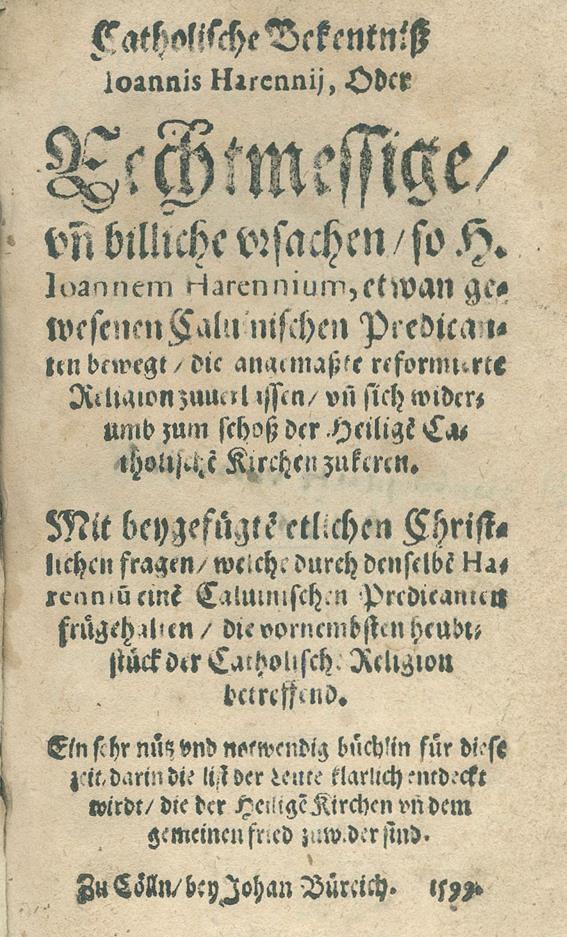 Catholische Bekentniß
Ioannis Harennij, Oder
Rechtmessige/
vñ billiche vrsachen/ so H.
Ioannem Harennium, etwan ge-
wesenen Caluinischen Predican-
ten bewegt/ die angemaßte reformierte
Religion zuuerlassen/ vñ sich wider-
umb zum schoß der Heiligẽ Ca-
tholischẽ Kirchen zukeren.
Mit beygefügtẽ etlichen Christ-
lichen fragen/ welche durch denselbẽ Ha-
renniũ einẽ Caluinischen Predicanten
fürgehalten/ die vornembsten heubt-
stück der Catholischẽ Religion
betreffend.
Ein sehr nütz vnd notwendig büchlin für diese
zeit, darin die list der Leute klarlich entdeckt
wirdt/ die der Heiligẽ Kirchen vñ dem
gemeinen fried zuwider sind.
Zu Cölln/ bey Johan Büreich. 1599.